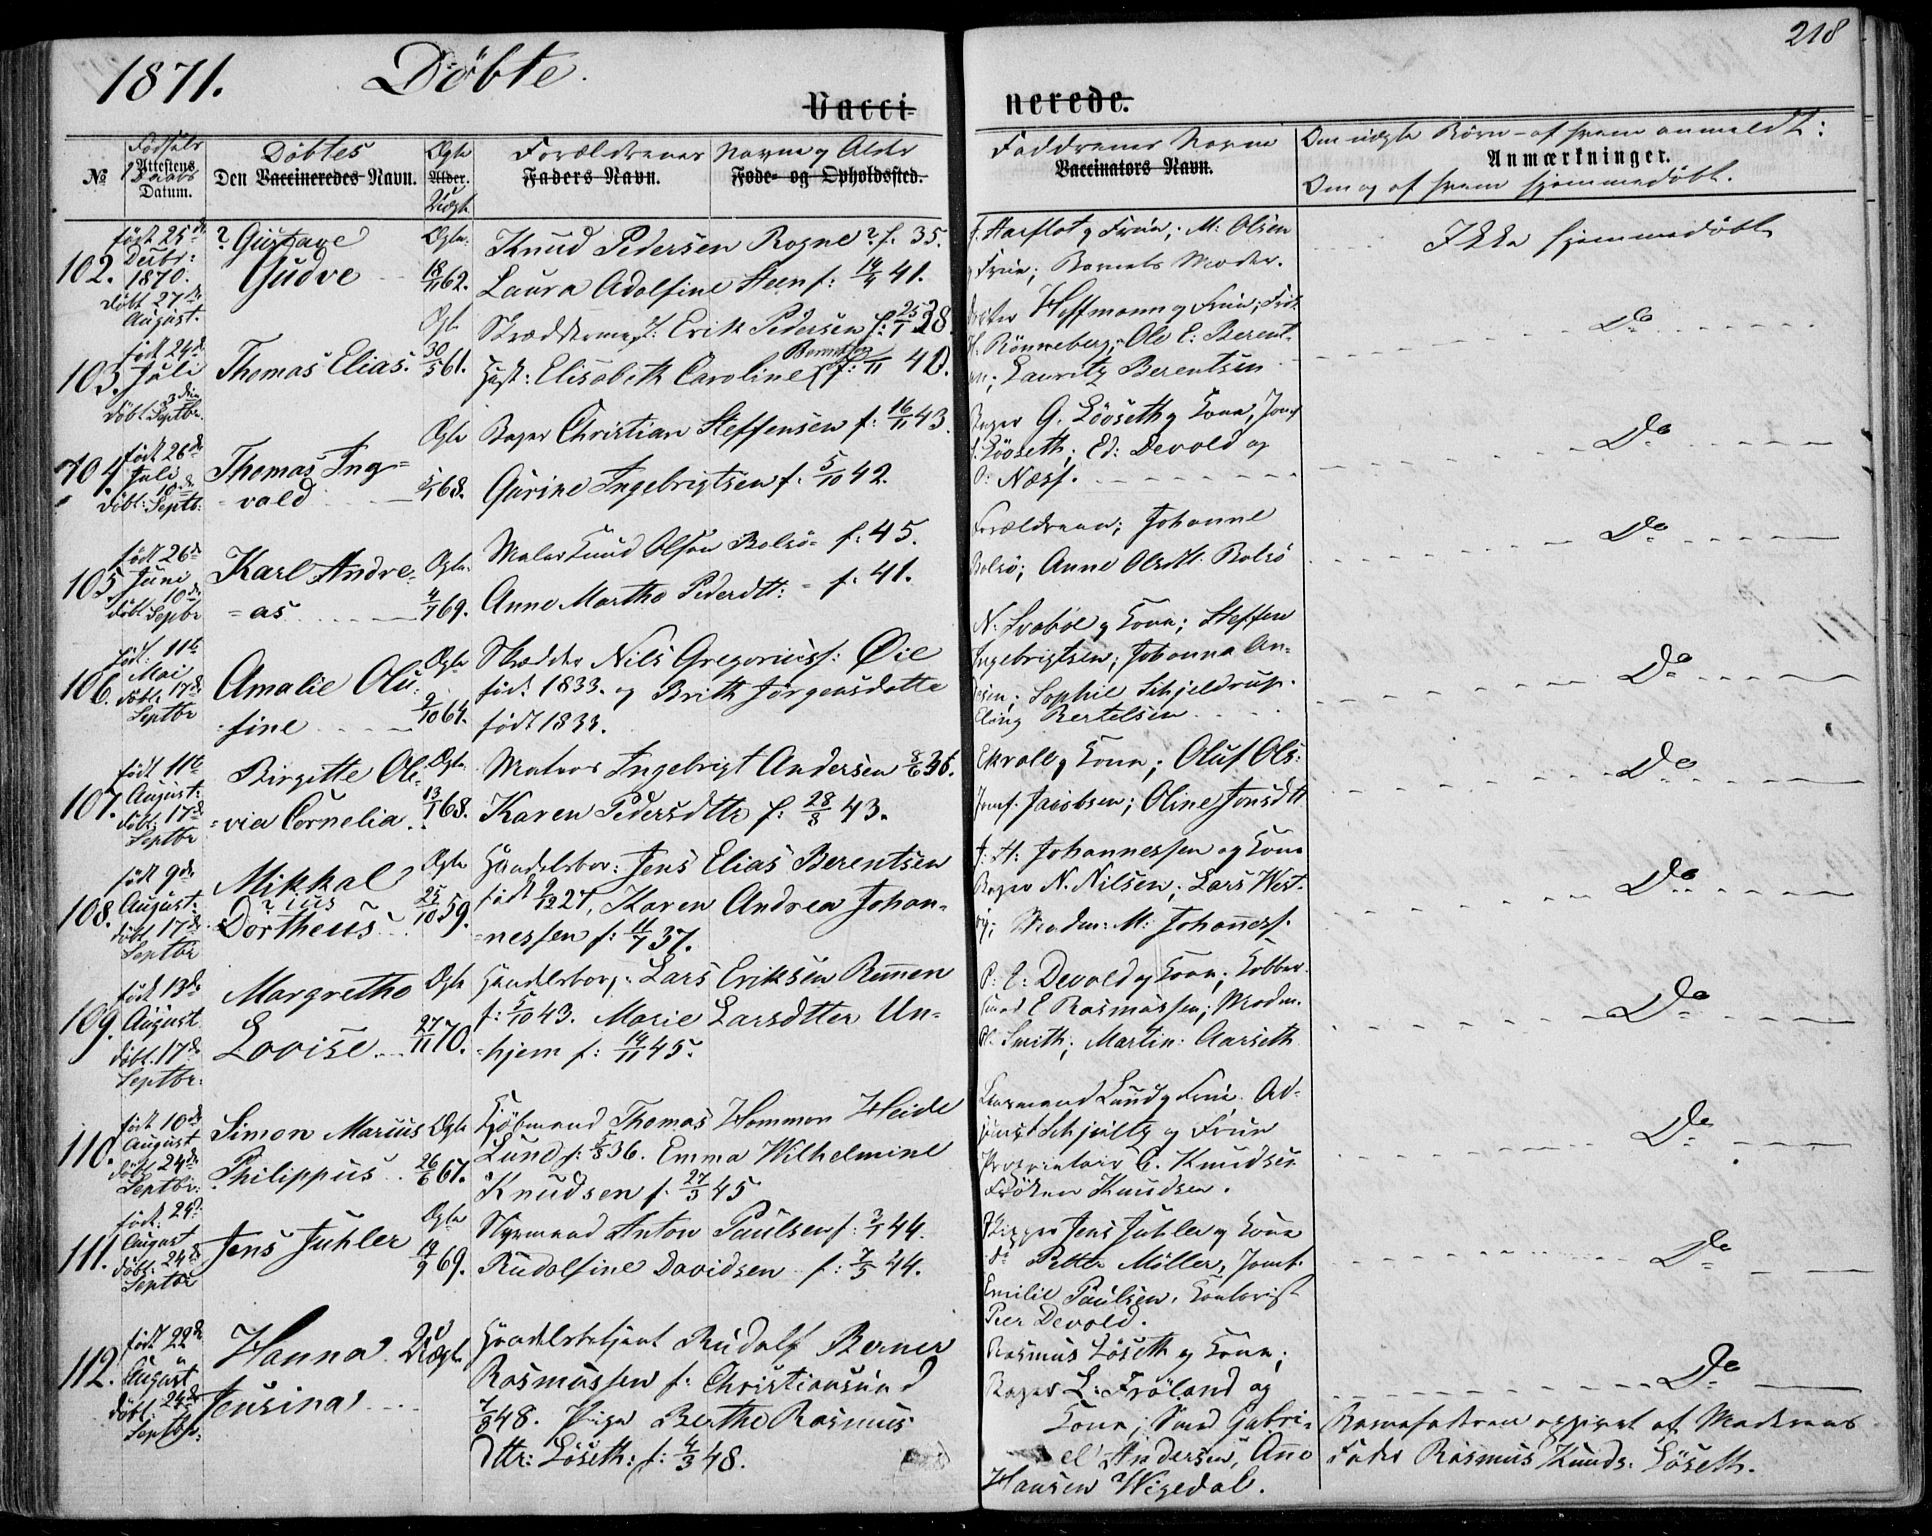 218
1871. Döbte.
Vacci nerede.
No
Födsels
Attestens
Daabs
Datum.
Döbtes
Den Vaccineredes Navn.
Ægte
Alder.
Uægte
Forældrenes Navne og Alder
Faders Navn.
Føde- og Opholdssted.
Faddrenes Navne
Vaccinators Navn.
Om uægte Börn - af hvem anmeldt:
Anmærkninger.
Om og af hvem hjemmedöbt.
102.
född 25de
Decbr:
1870.
döbt 27de
August.
? Gustave
Gudve
Ægte.
18/11 62.
Knud Pedersen Rogne? f. 35.
Laura Adolfine Steen f: 14/4 41.
F. Harflot og Frue; M. Olsen
og Frue; Barnets Moder.
Ikke hjemmedöbt
103.
född 24de
Juli
döbt 3die
Septbr.
Thomas Elias.
Ægte
30/5 61.
Skræddermester: Erik Pedersen f: 25/1 38.
Hust: Elisabeth Caroline Berentsen f: /11 40.
Hoffmann og Frue; Frk
Rönneberg; Ole E: Berent-
sen; Lauritz Berentsen
Do
104.
född 26de
Juli
döbt: 10de
Septb:
Thomas Ing=
=vald
Ægte
5/1 68.
Bager Christian Steffensen f: 16/11 43.
Gurine Ingebrigtsen f. 5/10 42.
Bager G. Lööseth og Kone, Jomf
Lööseth; Ed: Devold og
P: Næss.
Do
105.
född 26de
Juni
döbt 10de
Septbr
Karl Andre-
=as
Ægte.
4/7 69.
Maler Knud Olsen Bolsö f: 45.
Anne Martha Pedersdtt: f: 41.
Forældrene; Johanne
Bolsö; Anne Olsdtt. Bolsö
Do
106.
född: 11te
Mai
döbt: 17de
Septbr
Amalie Olu-
=fine
Ægte
9/10 64.
Skrædder Nils Gregoriuss: Øie
föd: 1833. og Brith Jørgensdatte
född 1833.
N. Svaböe og Kone; Steffen
Ingebrigtsen; Johanna An-
dersen; Sophie Schjeldrup.
Eling Bertelsen
Do
107.
född 11te
August:
döbt 17de
Septbr
Birgitte Oli-
=via Cornelia.
Ægte.
13/1 68.
Matros Ingebrigt Andersen 8/6 36.
Karen Pedersdttr f: 28/8 43.
Ekroll og Kone; Oluf Ols:
Jomf. Jacobsen; Oline Jonsdtt
Do
108.
född 9de
August:
döbt 17de
Septbr
Mikkal
? ius ~
Dortheus
Ægte
25/10 59.
Handelsbor: Jens Elias Berentsen
född 9/12 27, Karen Andrea Johan-
=nessen f: 11/7 37.
J: H: Johannessen og Kone
Bager N. Nilsen; Lars West-
Madm: M: Johanness.
Do
109.
född 13de
August
döbt 17de
Septbr:
Margrethe
Lovise
Ægte
27/11 70.
Handelsborg: Lars Eriksen Remmen
f: 5/10 43. Marie Larsdtter Un=
=hjem f: 14/11 45.
P: E: Devold og Kone; Kobber-
smed E Rasmussen; Madm.
Smith; Martin: Aarseth
Do
110.
född 10de
August
döbt 24de
Septbr:
Simon Marius
Philippus
Ægte
26/6 67.
Kjöbmand Thomas Hammon Heide
Lund f: 5/5 36. Emma Wilhelmine
Knudsen f. 27/3 45
Lensmand Lund og Frue. Ad-
junct Schjultz og Frue
Proprietair C. Knudsen
Fröken Knudsen.
Do
111.
född: 29de
August
döbt: 24de
Septbr
Jens Juhler
Ægte
19/9 69.
Styrmand Anton Paulsen f: 3/1 44.
Rudolfine Davidsen f: 7/5 44.
Skipper Jens Juhler og Kone
do Petter Möller, Jomf.
Emilie Paulsen, Contorist
Peer Devold.
Do
112.
född 22de
August
döbt: 24de
Septbr:
Hanna
Jensina
Uægte
Handelsbetjent Rudolf Berner
Rasmussen f: Christiansund
7/9 48. Pige Berthe Rasmus
dttr: Löseth: f: 4/3 48.
Rasmus Löseth og Kone;
Bager L: Fröland og
Kone; Smed Gabri-
el Andersen, Ane
Hansen Wigedal.
Do
Barnefaderen opgivet af Moderens
Fader Rasmus Knuds. Löseth.